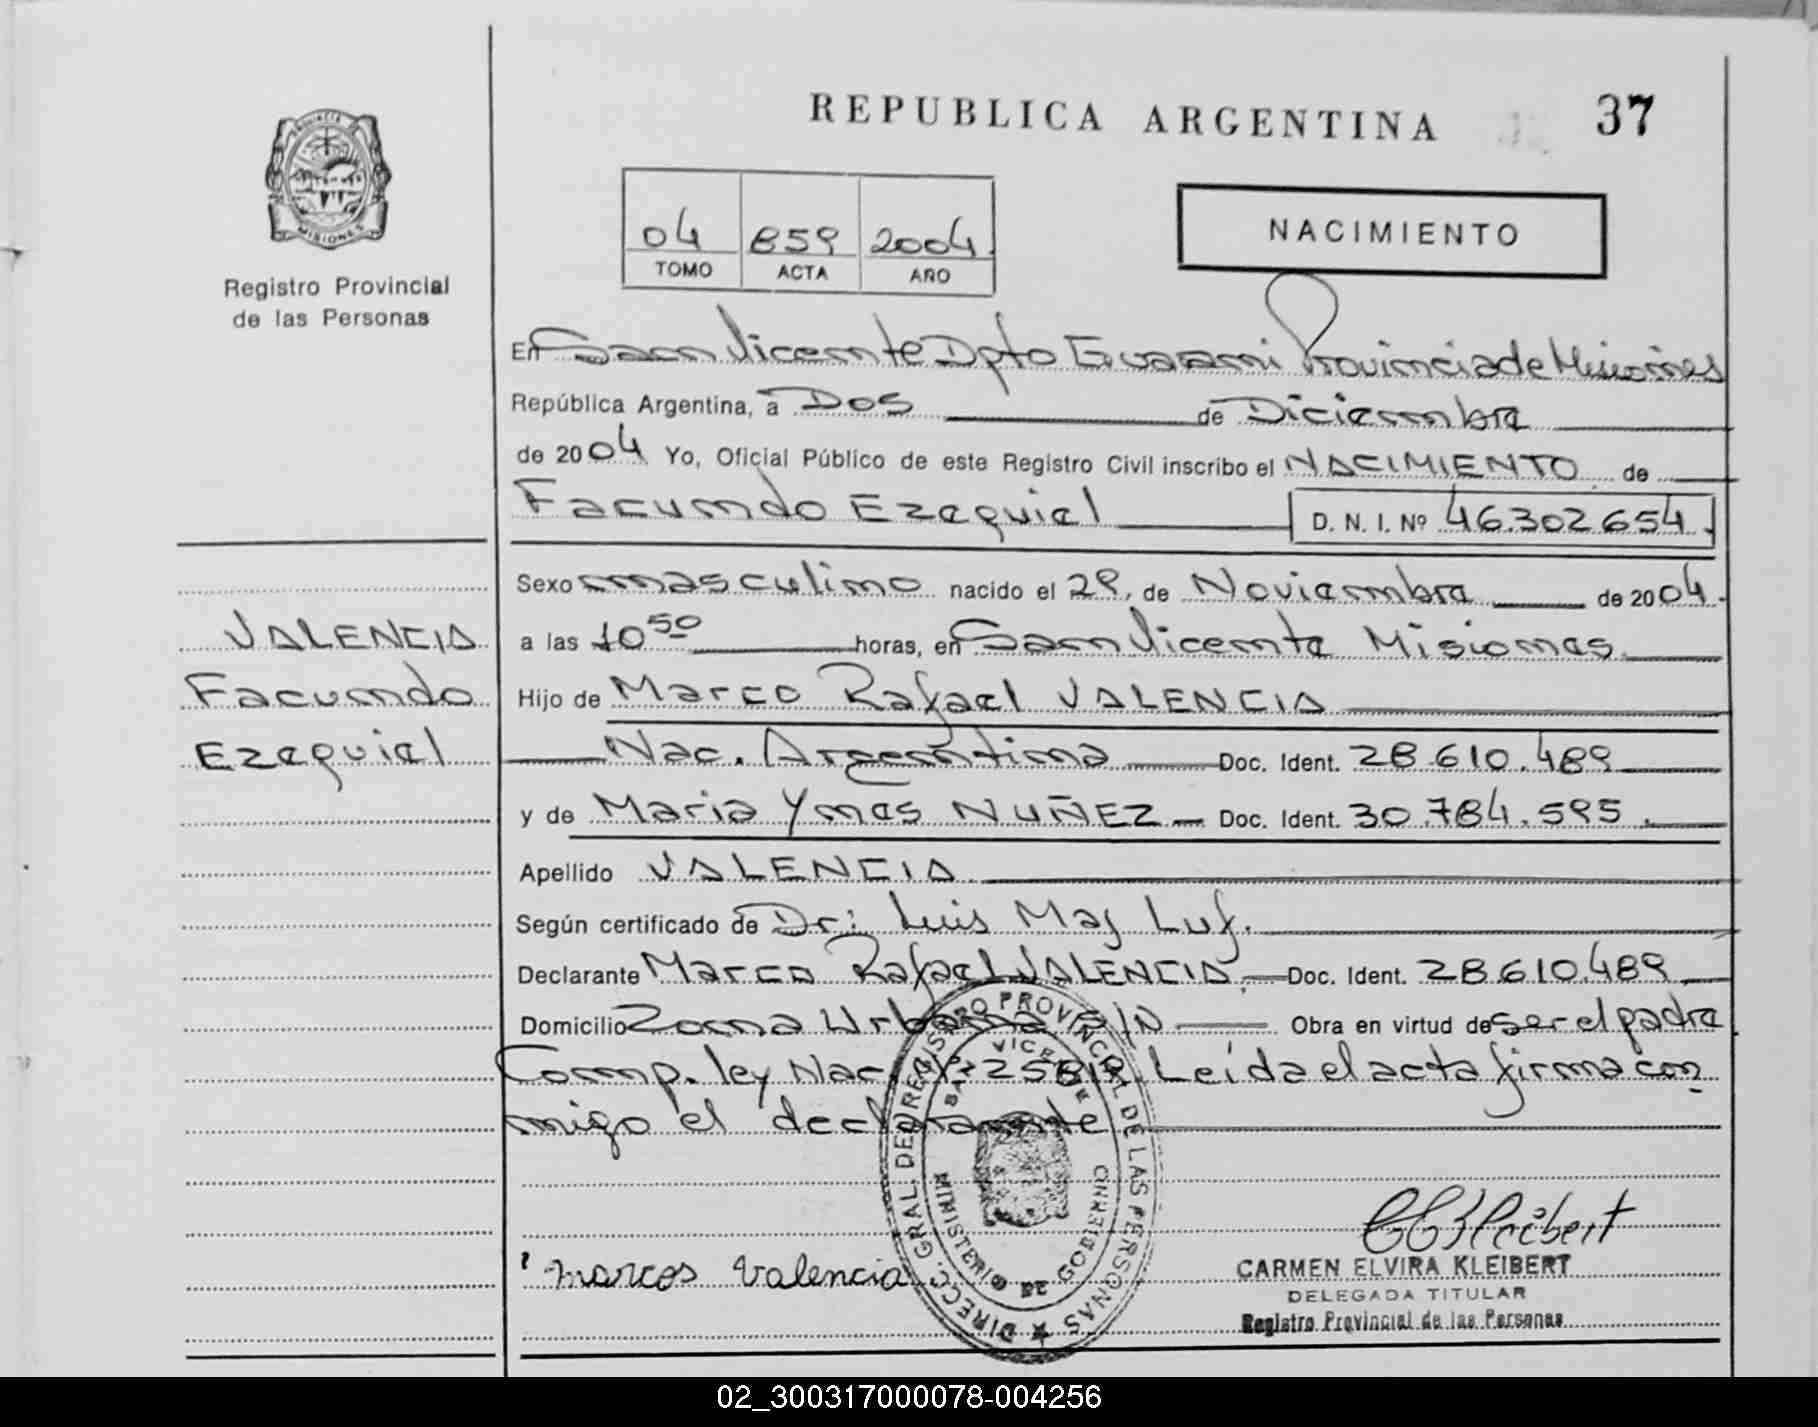 REPUBLICA ARGENTINA
37
PROVINCIA DE
MISIONES
Registro Provincial
de las Personas
04 859 2004
TOMO ACTA AÑO
NACIMIENTO
En San Vicente Dpto Guarani Provincia de Misiones
República Argentina, a Dos de Diciembre
de 2004 Yo, Oficial Público de este Registro Civil inscribo el NACIMIENTO de
Facundo Ezequiel D. N. I. Nº 46.302654
Sexo masculino nacido el 29, de Noviembre de 2004
a las 10 50 horas, en San Vicente Misiones
Hijo de Marco Rafael VALENCIA
Nac. Argentina Doc. Ident. 28.610.489
y de Maria Ynes NUÑEZ Doc. Ident. 30.784.595
Apellido VALENCIA
Según certificado de Dr: Luis Mag Luf.
Declarante Marco Rafael VALENCIA Doc. Ident. 28.610.489
Domicilio Zona Urbana S/N Obra en virtud de ser el padre
Comp. ley Nac. Nº 25819 Leida el acta firma con
migo el declarante
VALENCIA
Facundo
Ezequiel
DIRECC. GRAL. DE REGISTRO PROVINCIAL DE LAS PERSONAS
SAN VICENTE
MINISTERIO DE GOBIERNO
marcos Valencia
CEKleibert
CARMEN ELVIRA KLEIBERT
DELEGADA TITULAR
Registro Provincial de las Personas
02_300317000078-004256